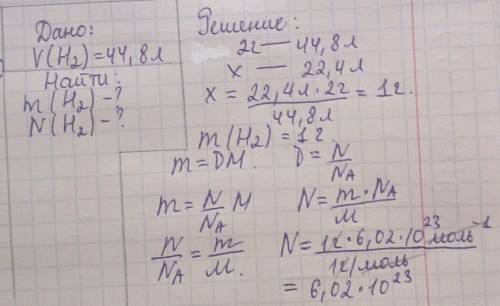 Дано:
V(H₂)=44,8л
Найти:
m(H₂)-?
N(H₂)-?
Решение:
2г — 44,8л
х — 22,4л
х = 22,4л·2г / 44,8л = 1г.
m(H₂)=1г.
m=DM. D=N/NA
m=N/NA M N=m·NA/M
N/NA=m/M. N=1г·6,02·10²³моль⁻¹/1г/моль
=6,02·10²³